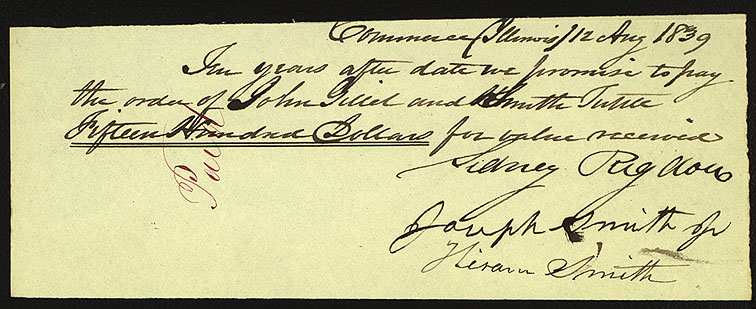 Commerce (Illinois) 12 Aug 1839
Ten years after date we promise to pay
the order of John Gillet and Smith Tuttle
Fifteen Hundred Dollars for value received
Sidney Rigdon
Joseph Smith Jr
Hiram Smith
Paid